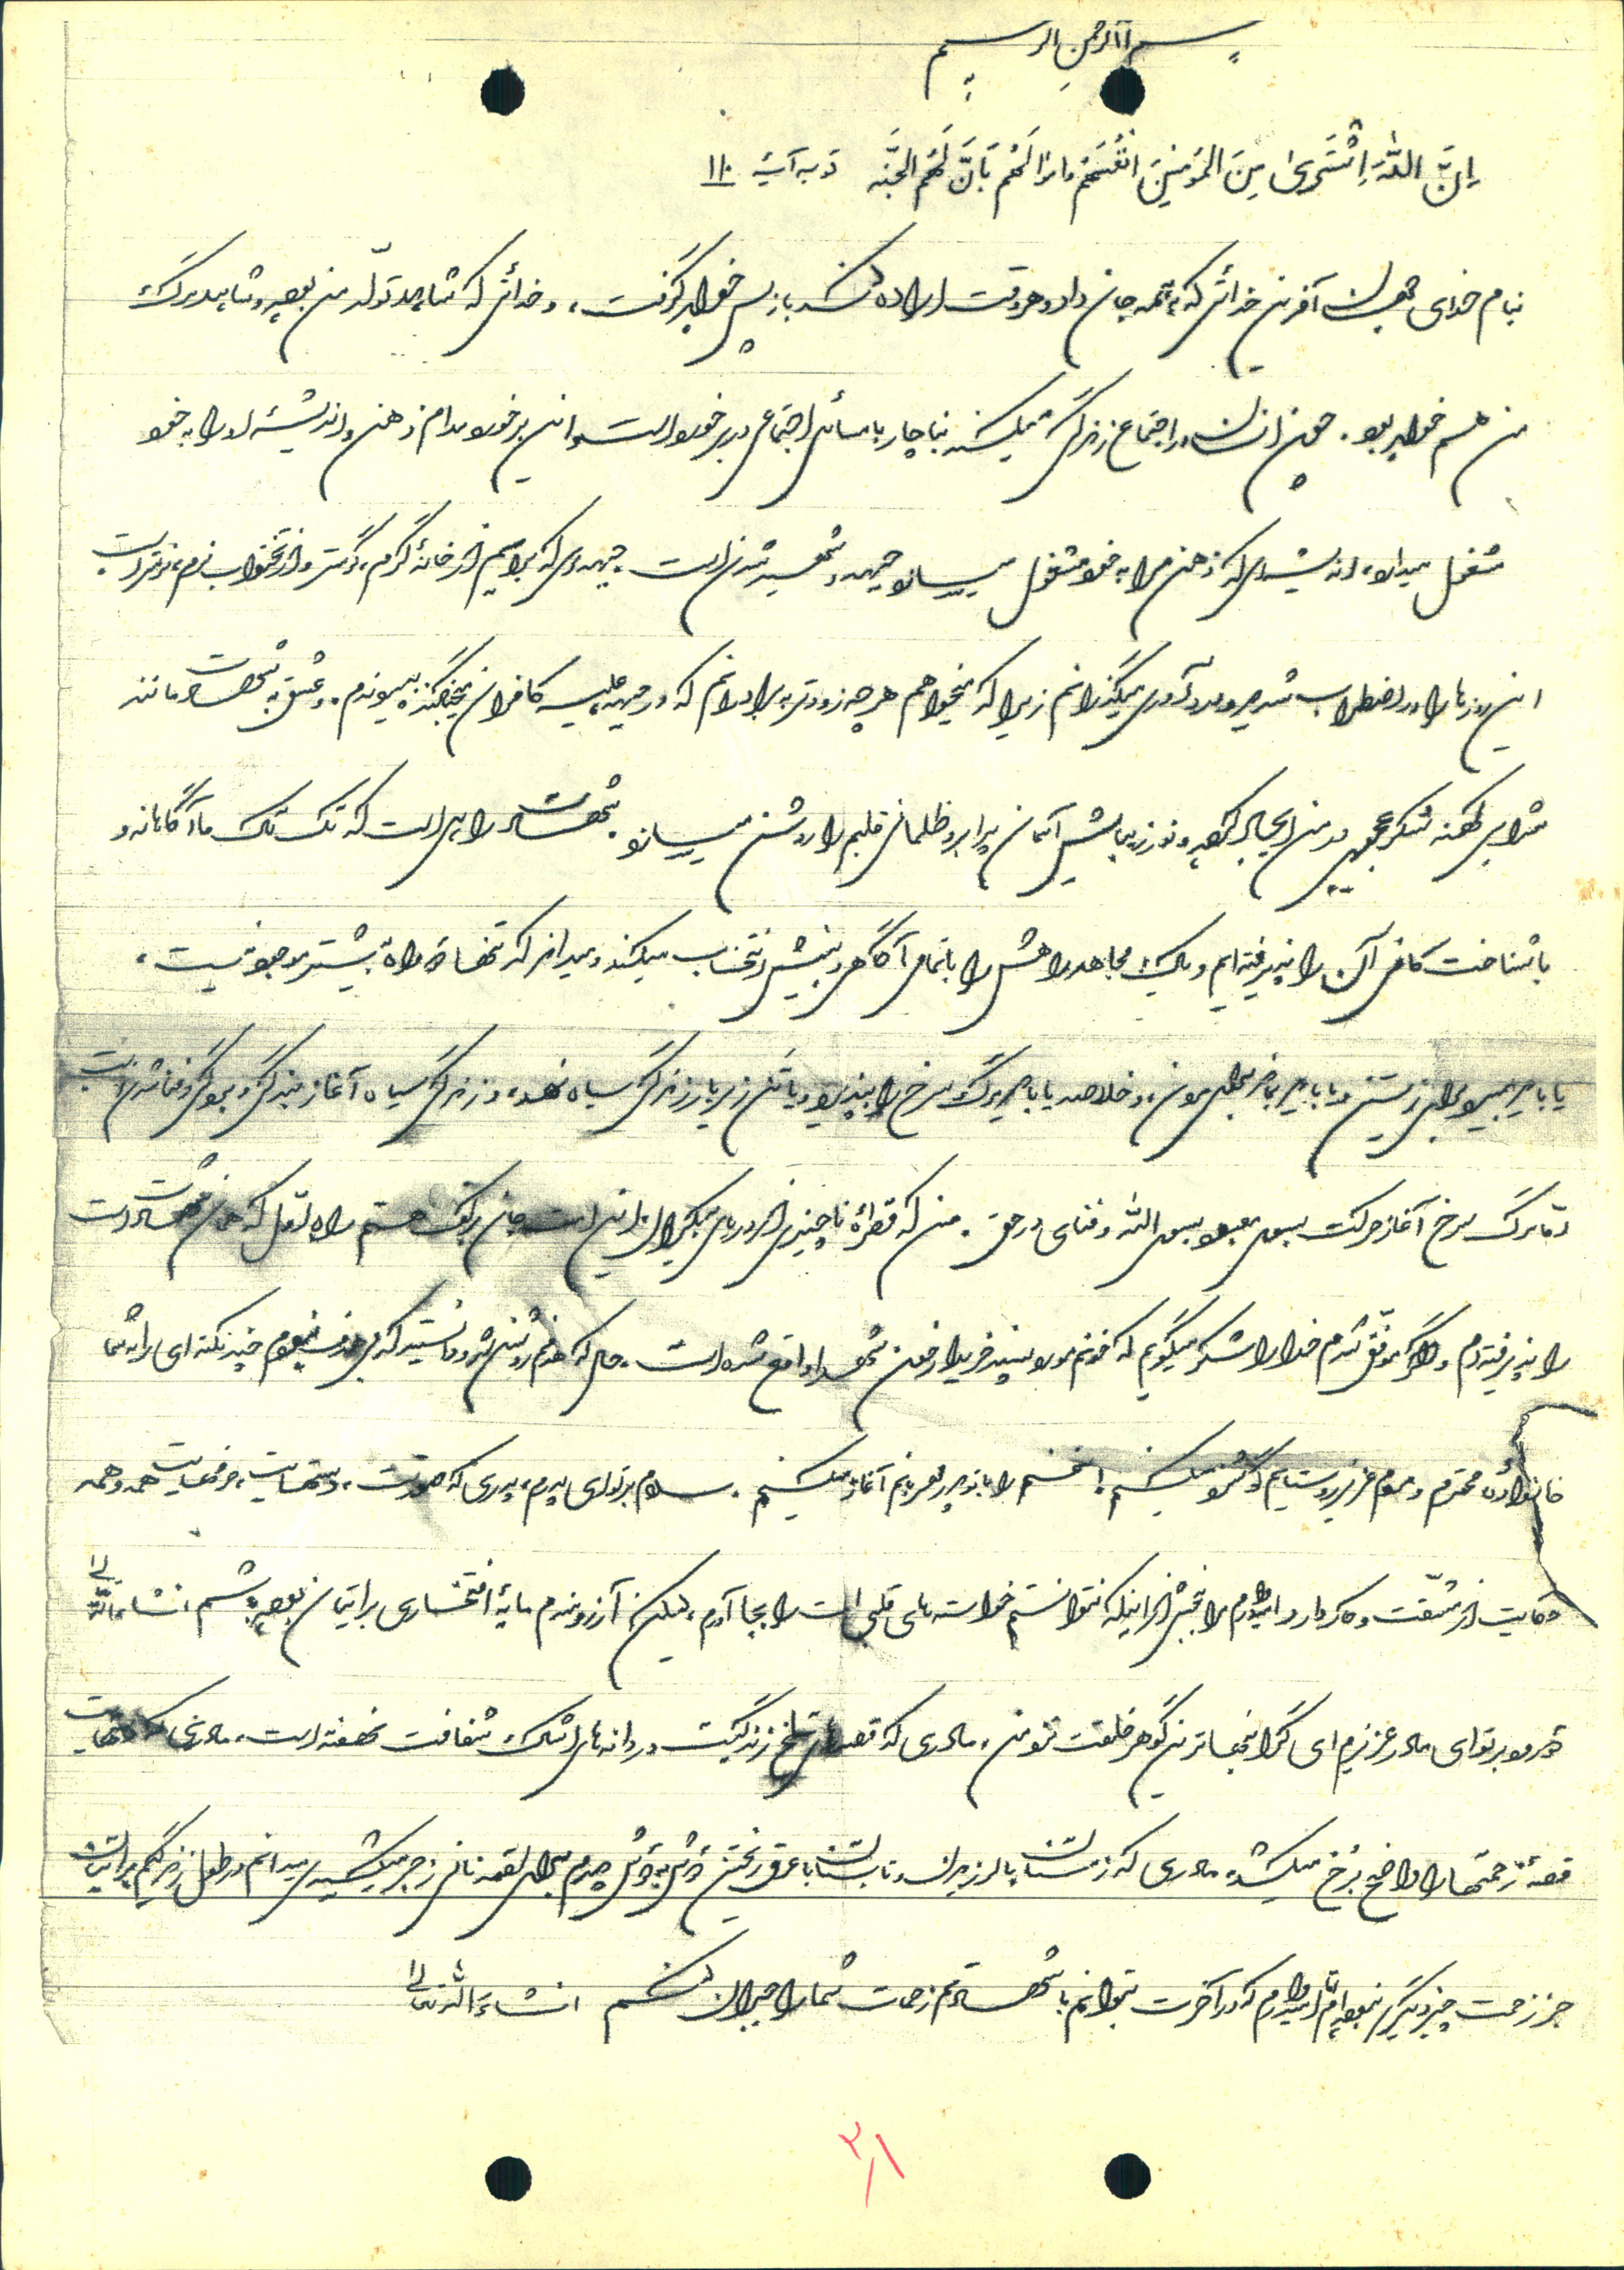 بسم الله الرحمن الرحیم
اِنَّ اللّهَ اِشْتَریٰ مِنَ المُؤمِنینَ انفُسَهُم و اموالَهُم بَانَّ لَهُم الجَنَّه توبه آیهٔ ۱۱۰
بنام خدای جهان آفرین خدائی که به همه جان داد و هر وقت اراده کند باز پس خواهد گرفت، و خدائی که شاهد تولّد من بوده و شاهد مرگ
من هم خواهد بود. چون انسان در اجتماع زندگی میکند بناچار با مسائل اجتماعی در برخورد است و این برخورد مدام ذهن و اندیشهٔ او را به خود
مشغول میدارد، اندیشه‌ای که ذهن مرا به خود مشغول میسازد جبهه و شهید شدن است. جبهه‌ای که برایم از خانهٔ گرم، گرمتر و از تختخواب نرم، نرمتر است
این روزها را در اضطراب شدید و درد آوری میگذرانم زیرا که میخواهم هر چه زودتر به برادرانم که در جبهه علیه کافران میجنگند بپیوندم. و عشق به شهادت مانند
شرابی کهنه سکر عجیبی در من ایجاد کرده و نور زیبایش آسمان پر ابر و ظلمانی قلبم را روشن میسازد. شهادت راهی است که تک تک ما آگاهانه و
با شناخت کافی آن را پذیرفته‌ایم و یک مجاهد راهش را با تمامی آگاهی و بینش انتخاب میکند و میداند که تنها دو راه بیشتر موجود نیست،
یا باید بمیرد برای زیستن و یا باید بماند برای مردن، و خلاصه یا باید مرگ سرخ را بپذیرد و یا تن زیر بار زندگی سیاه نهد، و زندگی سیاه آغاز بندگی و بردگی و فنا شدن است
و تا مرگ سرخ آغاز حرکت بسوی معبود بسوی الله و فنای در حق. من که قطره‌ٔ ناچیزی از دریای بیکران این امت جان بر کف هستم راه اول که همان شهادت است
را پذیرفته‌ام و اگر موفق شدم خدا را شکر میگویم که خونم مورد پسند خریدار خون شهدا واقع شده است. حال که هدفم روشن شد و دانستید که بی هدف نبودم چند نکته‌ای را به شما
خانواده محترم و مردم عزیز روستایم گوشزد میکنم. سخنم را با پدر مهربانم آغاز میکنم. سلام بر تو ای پدرم، پدری که صورتت، دستهایت، حرفهایت همه و همه
حکایت از مشقت و کار دارد امیدوارم مرا ببخشی از اینکه نتوانستم خواسته‌های قلبی‌ات را بجا آرم، لیکن آرزومندم مایهٔ افتخاری برایتان بوده باشم انشاءالله تعالی
درود بر تو ای مادر عزیزم ای گرانبهاترین گوهر خلقت نزد من، مادری که قصه‌های تلخ زندگیت در دانه‌های اشک شفافت نهفته است، مادری که دستهایت
قصهٔ زحمتها را واضح به رخ میکشد، مادری که زمستان با لرزیدن و تابستان با عرق ریختن دوش به دوش پدرم برای لقمه نانی زجر میکشید میدانم در طول زندگیم برایتان
جز زحمت چیز دیگری نبوده‌ام و امیدوارم که در آخرت بتوانم با شهادتم زحمات شما را جبران کنم انشاءالله تعالی
۳۱